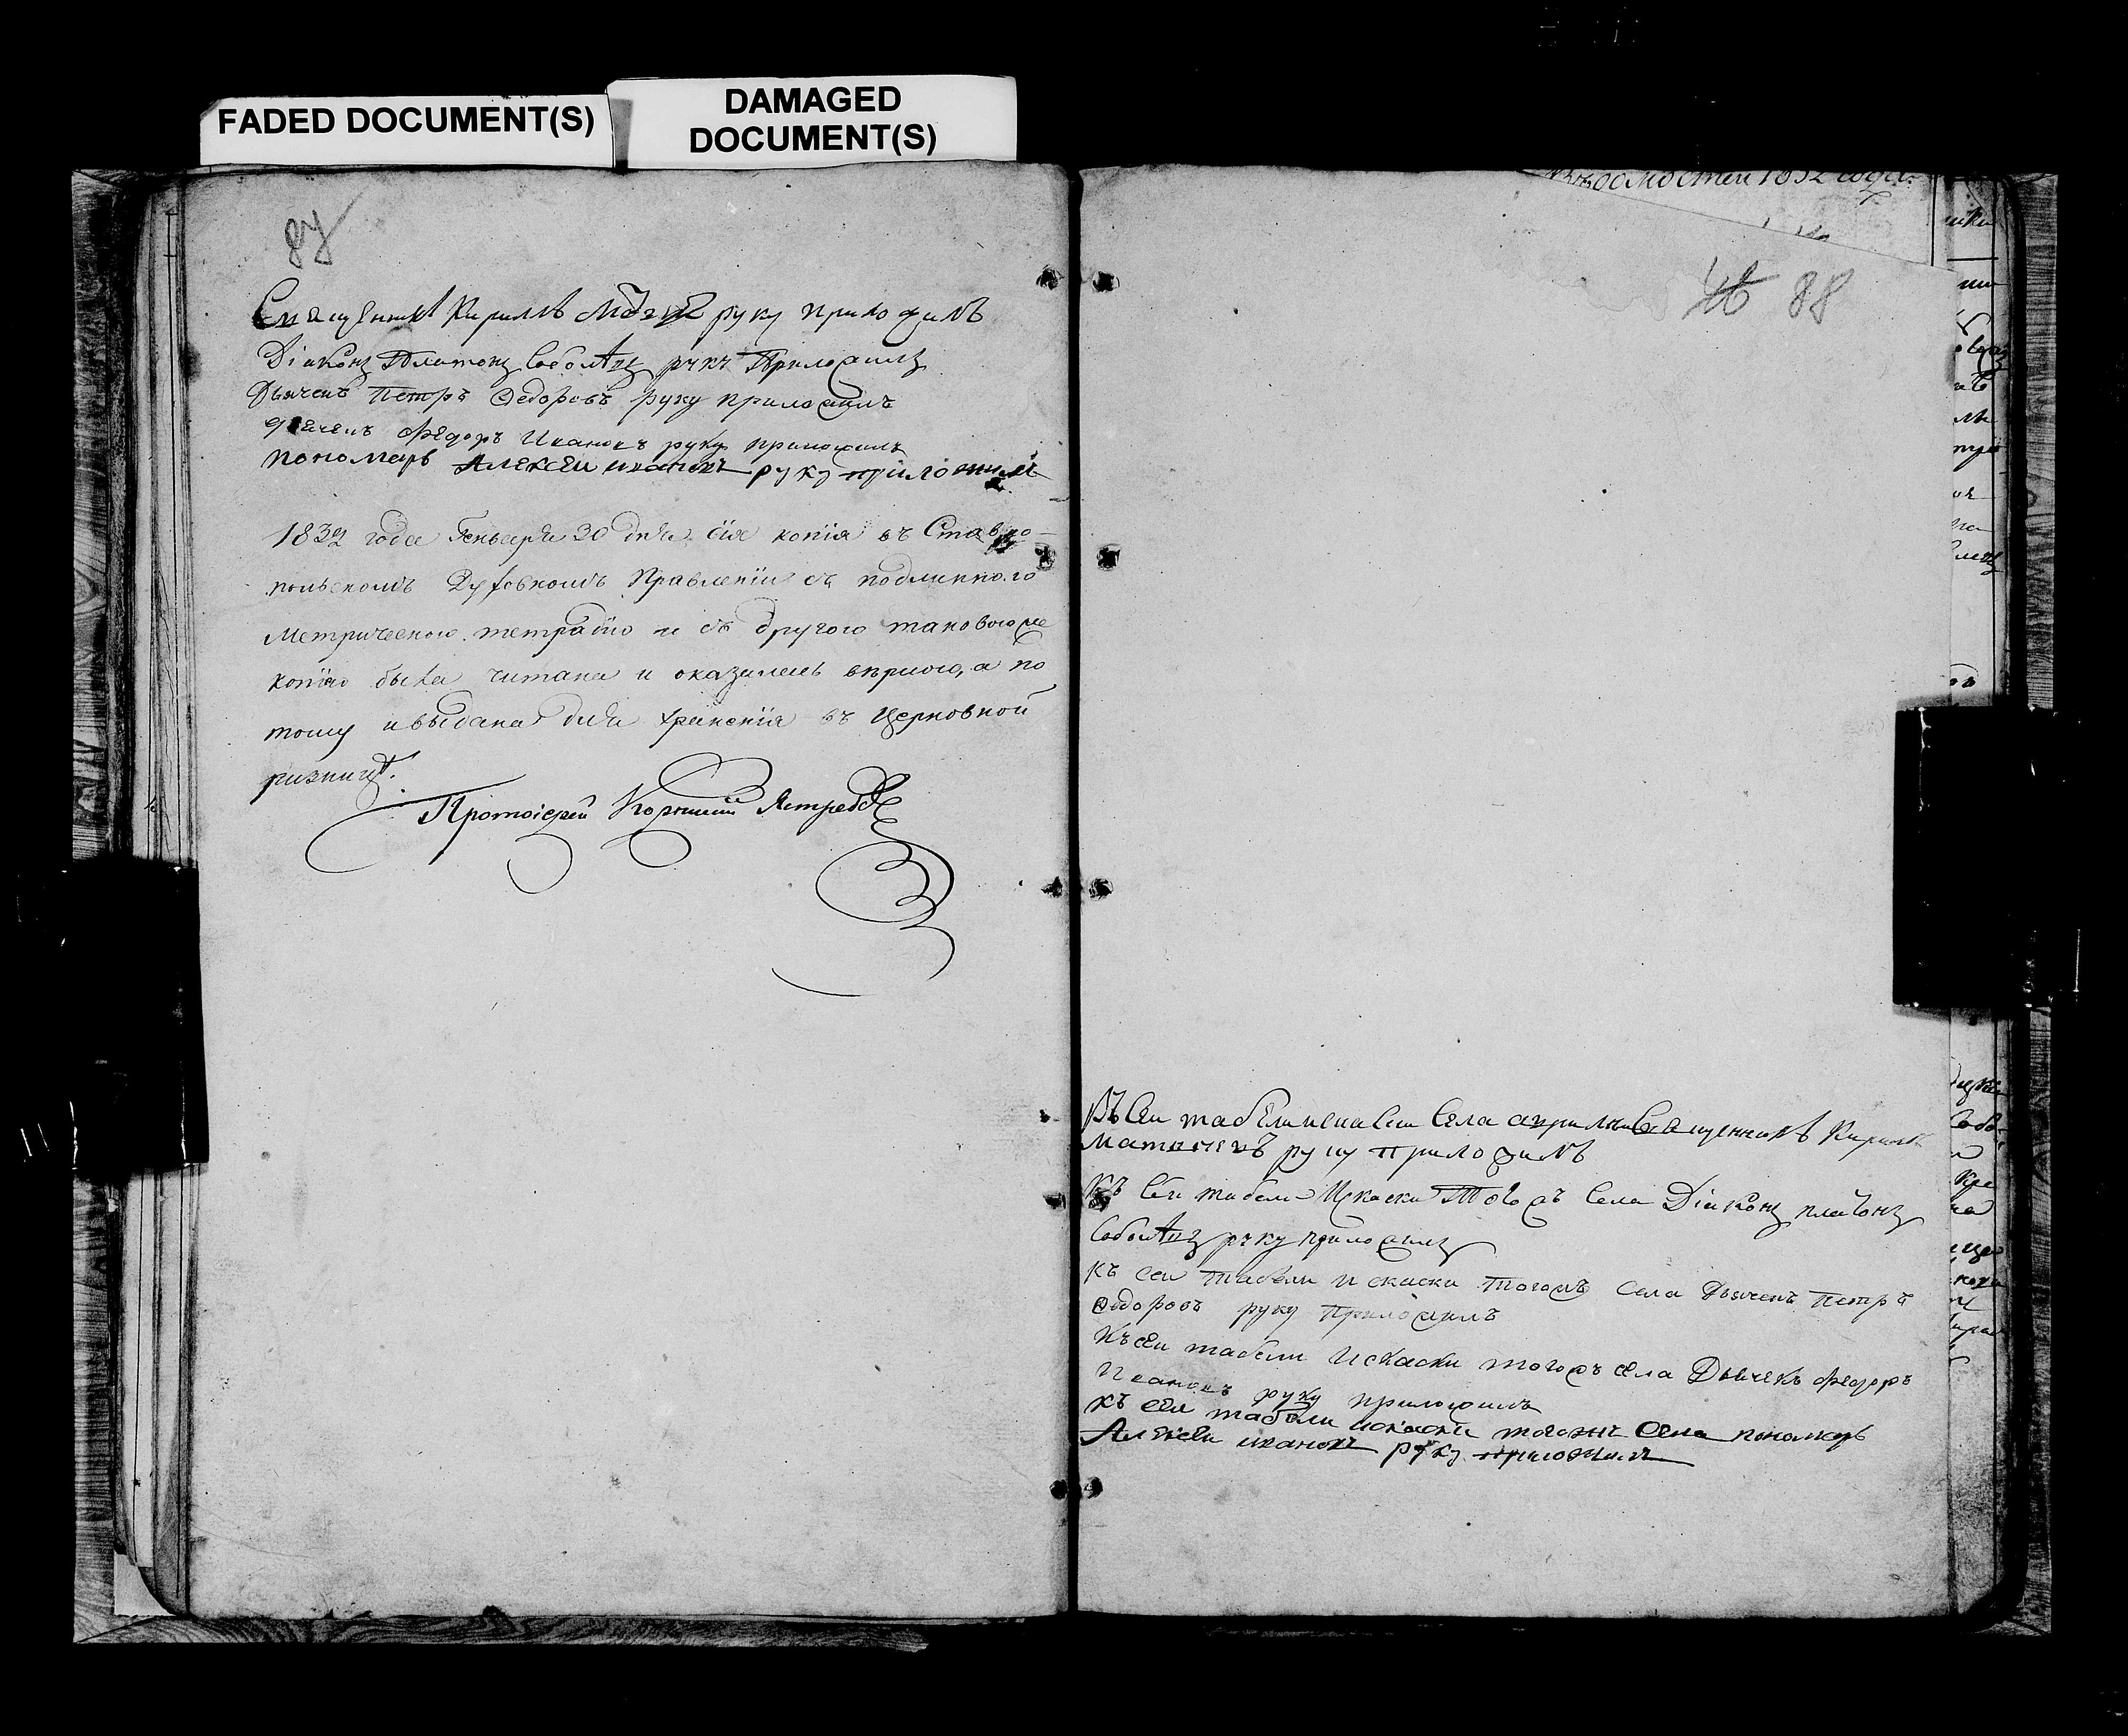 FADED DOCUMENT(S)
DAMAGED
DOCUMENT(S)
87
Священникъ Кириллъ руку приложилъ
Діаконъ Платонъ руку Приложилъ
Дьячекъ Петръ Ѳедоровъ руку приложилъ
дьячекъ Федоръ Ивановъ руку приложилъ
пономарь Алексеи ивановъ руку приложилъ
1832 года Генваря 30 дня сія копія въ Ставро-
польскомъ Духовномъ Правленіи съ подлинного
Метрическою тетрадью и съ другою таковою же
копіею была читана и оказалась вѣрною, а по
тому и выдана для храненія въ Церковной
ризницѣ.
Протоіерей Ястребовъ
ведомостей 1832 года
46 88
Къ Сеи табели Села Священникъ Кириллъ
руку приложилъ
Къ Сеи табели Искаски Тогожъ Села Діаконъ платонъ
руку приложилъ
къ сеи Табели и скаски тогожъ Села Дьячекъ Петръ
Ѳедоровъ руку Приложилъ
Къ сеи табели Искаски тогожъ села Дьячекъ Федоръ
Ивановъ руку приложилъ
къ сеи табели искаски тогожъ Села пономарь
Алексеи ивановъ руку приложилъ